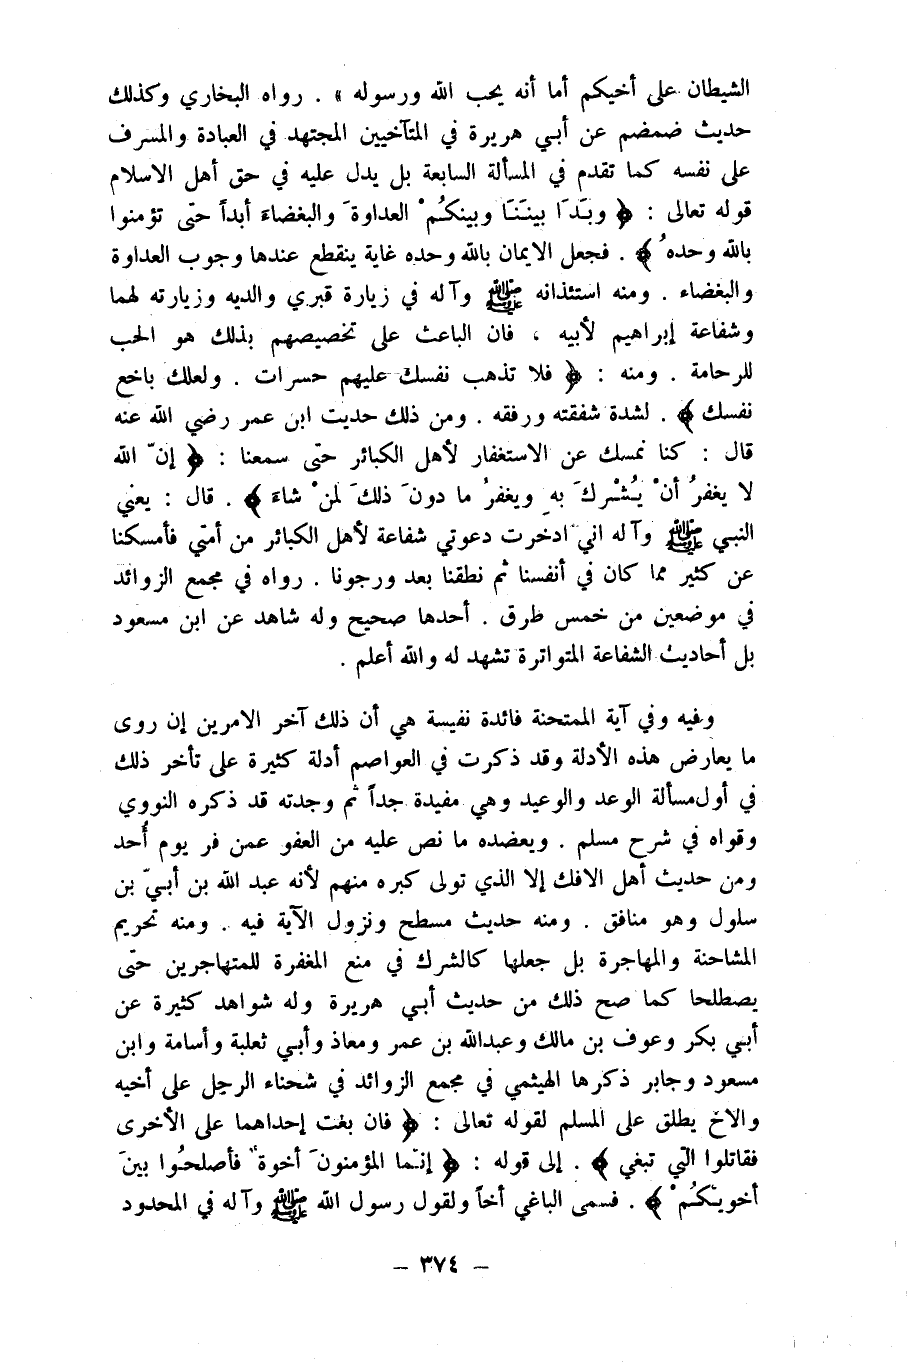 الشيطان على أخيكم أما أنه يحب الله ورسوله » . رواه البخاري وكذلك
حديث ضمضم عن أبي هريرة في المتآخيين المجتهد في العبادة والمسرف
على نفسه كما تقدم في المسألة السابعة بل يدل عليه في حق أهل الاسلام
قوله تعالى : ﴿ وبَدَا بينَنَا وبينكُمْ العداوةَ والبغضاءَ أبداً حتّى تؤمنوا
بالله وحدهُ ﴾ . فجعل الايمان بالله وحده غاية ينقطع عندها وجوب العداوة
والبغضاء . ومنه استئذانه ﷺ وآله في زيارة قبري والديه وزيارته لهما
وشفاعة إبراهيم لأبيه ، فان الباعث على تخصيصهم بذلك هو الحب
للرحامة . ومنه : ﴿ فلا تذهب نفسك عليهم حسرات . ولعلك باخع
نفسك ﴾ . لشدة شفقته ورفقه . ومن ذلك حديث ابن عمر رضي الله عنه
قال : كنا نمسك عن الاستغفار لأهل الكبائر حتّى سمعنا : ﴿ إنّ الله
لا يغفرُ أنْ يُشْركَ بهِ ويغفرُ ما دونَ ذلكَ لمنْ شاءَ ﴾ . قال : يعني
النبي ﷺ وآله اني ادخرت دعوتي شفاعة لأهل الكبائر من أمتي فأمسكنا
عن كثير مما كان في أنفسنا ثم نطقنا بعد ورجونا . رواه في مجمع الزوائد
في موضعين من خمس طرق . أحدها صحيح وله شاهد عن ابن مسعود
بل أحاديث الشفاعة المتواترة تشهد له والله أعلم .
وفيه وفي آية الممتحنة فائدة نفيسة هي أن ذلك آخر الامرين إن روى
ما يعارض هذه الأدلة وقد ذكرت في العواصم أدلة كثيرة على تأخر ذلك
في أول مسألة الوعد والوعيد وهي مفيدة جداً ثم وجدته قد ذكره النووي
وقواه في شرح مسلم . ويعضده ما نص عليه من العفو عمن فر يوم أُحد
ومن حديث أهل الافك إلا الذي تولى كبره منهم لأنه عبد الله بن أبيّ بن
سلول وهو منافق . ومنه حديث مسطح ونزول الآية فيه . ومنه تحريم
المشاحنة والمهاجرة بل جعلها كالشرك في منع المغفرة للمتهاجرين حتّى
يصطلحا كما صح ذلك من حديث أبي هريرة وله شواهد كثيرة عن
أبي بكر وعوف بن مالك وعبدالله بن عمر ومعاذ وأبي ثعلبة وأسامة وابن
مسعود وجابر ذكرها الهيثمي في مجمع الزوائد في شحناء الرجل على أخيه
والاخ يطلق على المسلم لقوله تعالى : ﴿ فان بغت إحداهما على الأخرى
فقاتلوا الّتي تبغي ﴾ . إلى قوله : ﴿ إنّما المؤمنونَ أخوةٌ فأصلحُوا بينَ
أخويْكُمْ ﴾ . فسمى الباغي أخاً ولقول رسول الله ﷺ وآله في المحدود
– ٣٧٤ –